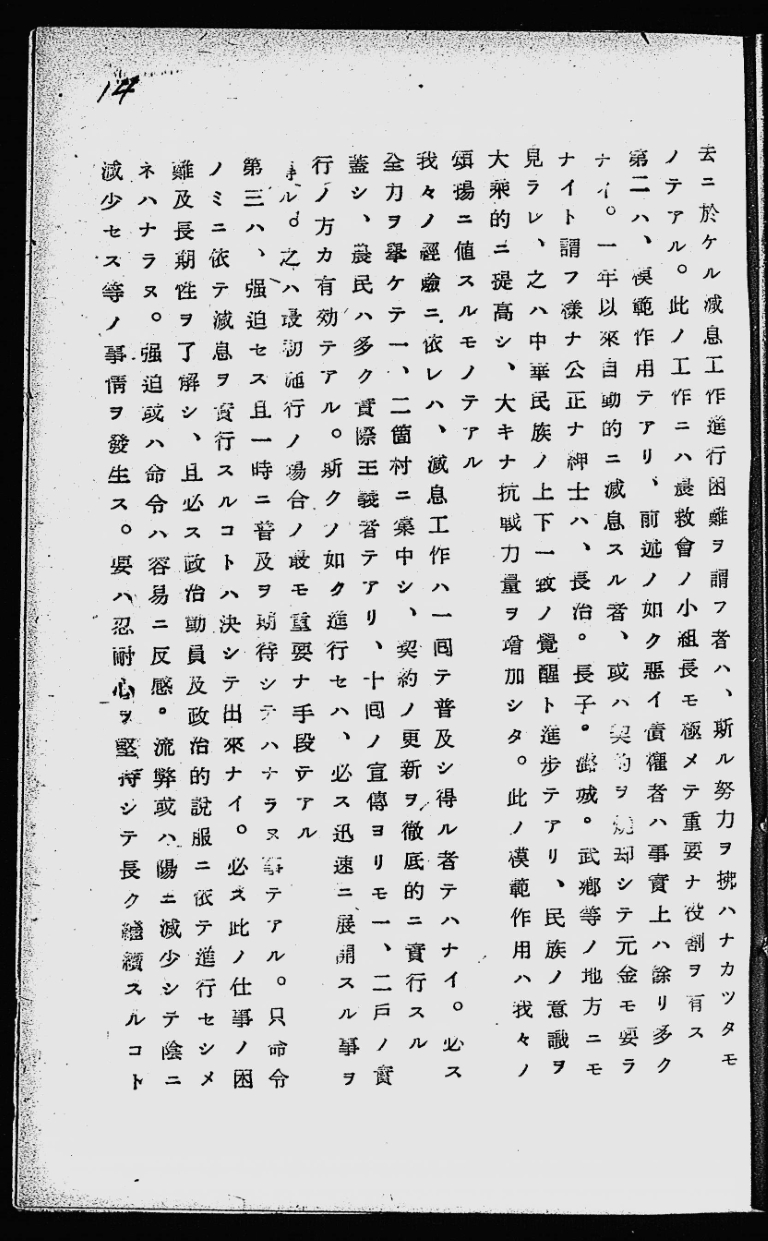 14
去ニ於ケル减息工作進行困難ヲ謂フ者ハ、斯ル努力ヲ拂ハナカツタモ
ノテアル。此ノ工作ニハ農救會ノ小組長モ極メテ重要ナ役割ヲ有ス
第二ハ、模範作用テアリ、前述ノ如ク悪イ債權者ハ事實上ハ餘リ多ク
ナイ。一年以來自動的ニ减息スル者、或ハ契約ヲ燒却シテ元金モ要ラ
ナイト謂フ樣ナ公正ナ紳士ハ、長治。長子。潞城。武鄕等ノ地方ニモ
見ラレ、之ハ中華民族ノ上下一致ノ覺醒ト進步テアリ、民族ノ意識ヲ
大乘的ニ提高シ、大キナ抗戰力量ヲ增加シタ。此ノ模範作用ハ我々ノ
頌揚ニ値スルモノテアル
我々ノ經驗ニ依レハ、减息工作ハ一囘テ普及シ得ル者テハナイ。必ス
全力ヲ擧ケテ一、二箇村ニ集中シ、契約ノ更新ヲ徹底的ニ實行スル
蓋シ、農民ハ多ク實際主義者テアリ、十囘ノ宣傳ヨリモ一、二戸ノ實
行ノ方カ有効テアル。斯クノ如ク進行セハ、必ス迅速ニ展開スル事ヲ
得ル。之ハ最初施行ノ場合ノ最モ重要ナ手段テアル
第三ハ、强迫セス且一時ニ普及ヲ期待シテハナラヌ事テアル。只命令
ノミニ依テ减息ヲ實行スルコトハ決シテ出來ナイ。必ス此ノ仕事ノ困
難及長期性ヲ了解シ、且必ス政治動員及政治的說服ニ依テ進行セシメ
ネハナラヌ。强迫或ハ命令ハ容易ニ反感。流弊或ハ陽ニ减少シテ陰ニ
减少セス等ノ事情ヲ發生ス。要ハ忍耐心ヲ堅持シテ長ク繼續スルコト